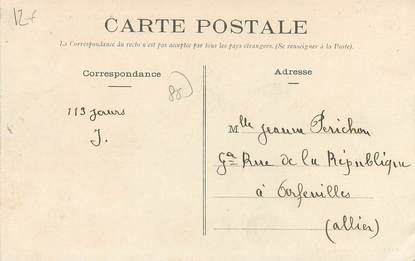 12f
CARTE POSTALE
La Correspondance du recto n'est pas acceptée par tous les pays étrangers. (Se renseigner à la Poste).
Correspondance
Adresse
113 jours
J.
Mlle Jeanne Perichon
Gde Rue de la République
à Arfeuilles
(allier)